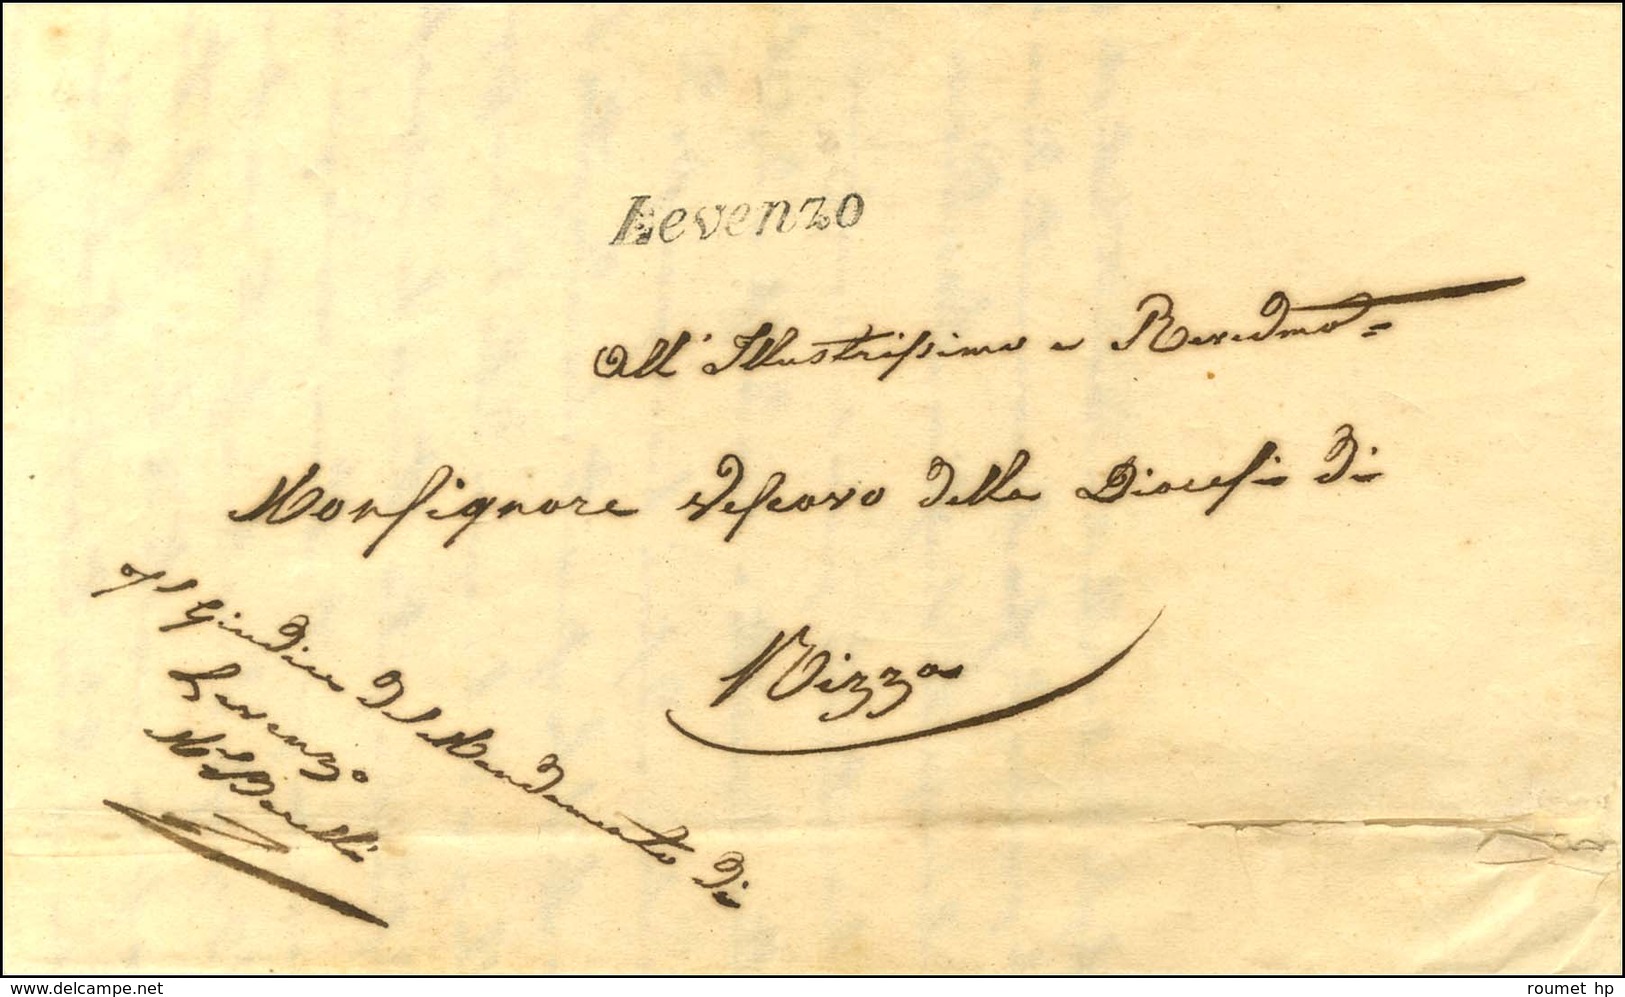 Levenzo
All' Illustrissimo e Reverdmo=
Monsignore Vescovo della Diocesi di
Nizza
Il Giudice del Mandamento di
Levenzo
www.delcampe.net
roumet hp